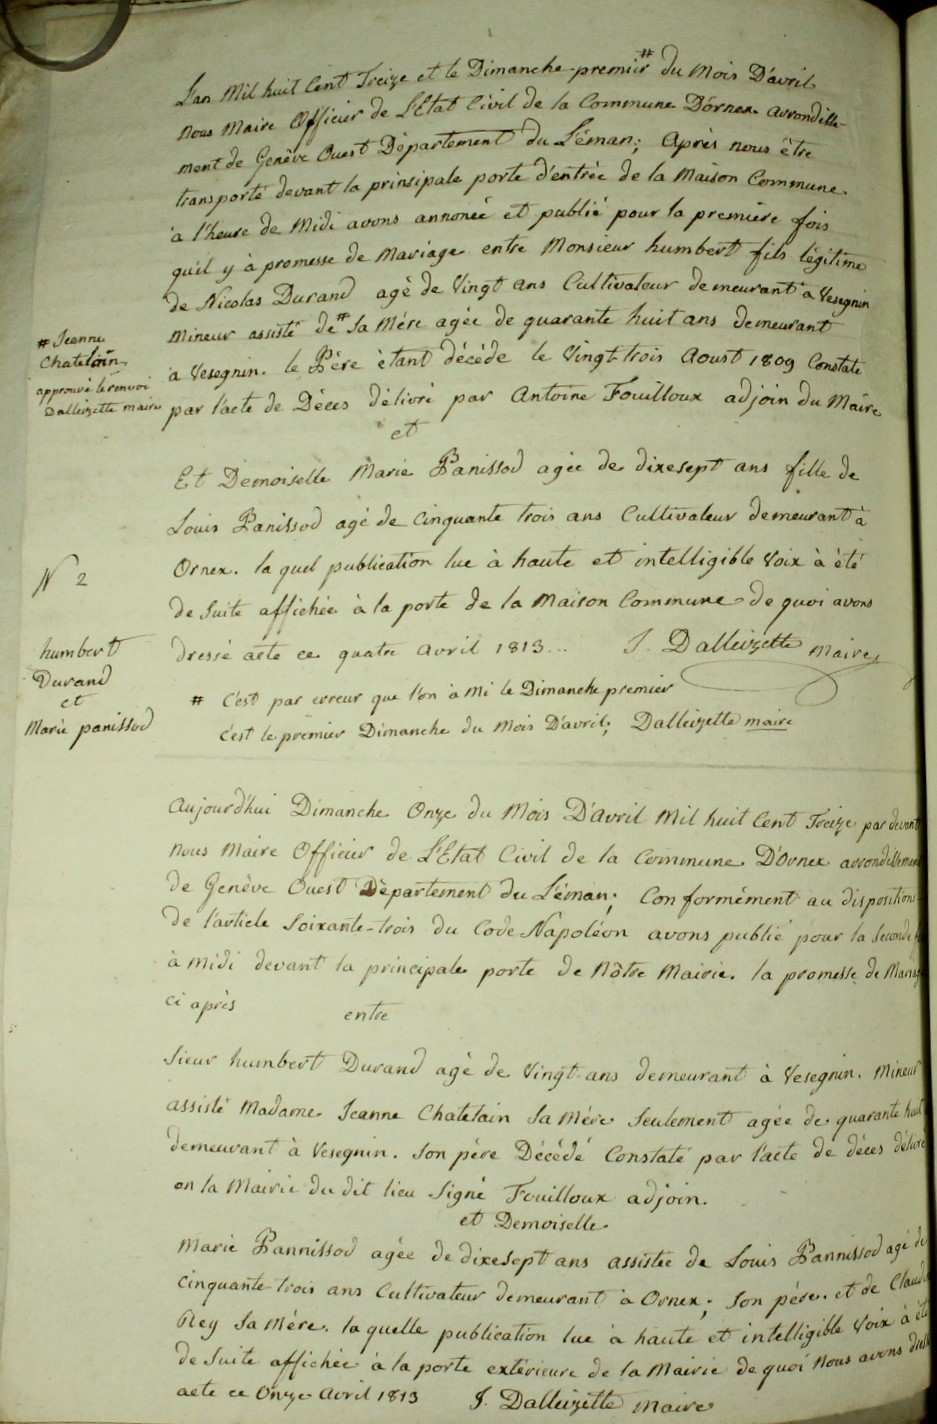 Lan Mil huit Cent Treize et le Dimanche premier # du Mois D'avril
Nous Maire Officier de L'Etat Civil de la Commune D'ornex arrondisse-
ment de Genêve Ouest Département du Léman; Après nous être
transporté devant la prinsipale porte d'entrée de la Maison Commune
à l'heure de Midi avons annoncé et publié pour la première fois
qu'il y à promesse de Mariage entre Monsieur humbert fils légitime
de Nicolas Durand agé de Vingt ans Cultivateur demeurant à Vesegnin
Mineur assisté de # Sa Mére agée de quarante huit ans demeurant
à Vesegnin. le Père étant décédé le Vingt trois Aoust 1809 Constaté
par l'acte de Déces délivré par Antoine Fouilloux adjoin du Maire
et
# Jeanne
Chatelain
approuvé le renvoi
Dalleizette maire
Et Demoiselle Marie Panissod agée de dixesept ans fille de
Louis Panissod agé de Cinquante trois ans Cultivateur demeurant à
Ornex. la quel publication lue à haute et intelligible Voix à été
de Suite affichée à la porte de la Maison Commune de quoi avons
dressé acte ce quatre Avril 1813... J. Dalleizette Maire
N 2
humbert
Durand
et
Marie panissod
# C'est par erreur que l'on à Mi le Dimanche premier
c'est le premier Dimanche du Mois D'avril; Dalleizette maire
Aujourd'hui Dimanche Onze du Mois D'Avril Mil huit Cent Treize par devant
Nous Maire Officier de L'Etat Civil de la Commune D'Ornex arrondissement
de Genêve Ouest Département du Léman; Conformément au dispositions
de l'article Soixante-trois du Code Napoléon avons publié pour la Seconde
à Midi devant la principale porte de Nôtre Mairie. la promesse de Mariage
ci après
entre
Sieur humbert Durand agé de Vingt ans demeurant à Vesegnin. Mineur
assisté Madame Jeanne Chatelain Sa Mére Seulement agée de quarante huit
demeurant à Vesegnin. Son pére Décédé Constaté par l'acte de déces délivré
en la Mairie du dit lieu Signé Fouilloux adjoin.
et Demoiselle
Marie Pannissod agée de dixesept ans assistée de Louis Pannissod agé de
Cinquante trois ans Cultivateur demeurant à Ornex; Son pére. et de Claud
Rey Sa Mére. la quelle publication lue à haute et intelligible Voix à été
de Suite affichée à la porte extérieure de la Mairie de quoi Nous avons
acte ce Onze Avril 1813 J. Dalleizette Maire